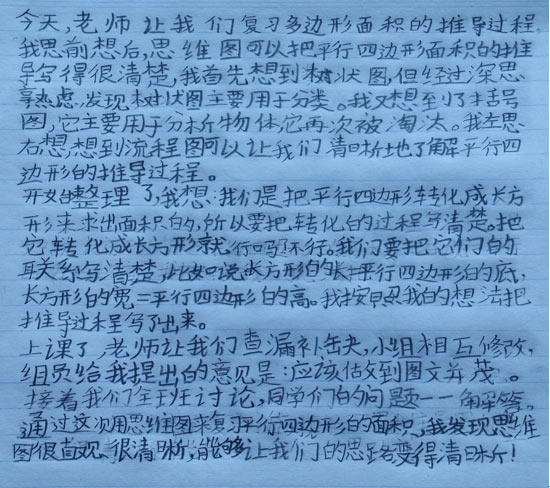 今天,老师让我们复习多边形面积的推导过程
我思前想后,思维图可以把平行四边形面积的推
导写得很清楚,我首先想到树状图,但经过深思
熟虑,发现树状图主要用于分类。我又想到了括号
图,它主要用于分析物体,它再次被淘汰。我左思
右想,想到流程图可以让我们清晰地了解平行四
边形的推导过程。
开始整理了,我想:我们是把平行四边形转化成长方
形来求出面积的,所以要把转化的过程写清楚。把
它转化成长方形就行吗?不行。我们要把它们的
联系写清楚,比如说长方形的长=平行四边形的底,
长方形的宽=平行四边形的高。我按照我的想法把
推导过程写了出来。
上课了,老师让我们查漏补缺,小组相互修改,
组员给我提出的意见是:应该做到图文并茂。
接着我们全班讨论,同学们的问题一一解答。
通过这次用思维图来复习平行四边形的面积,我发现思维
图很直观、很清晰,能够让我们的思路变得清晰!